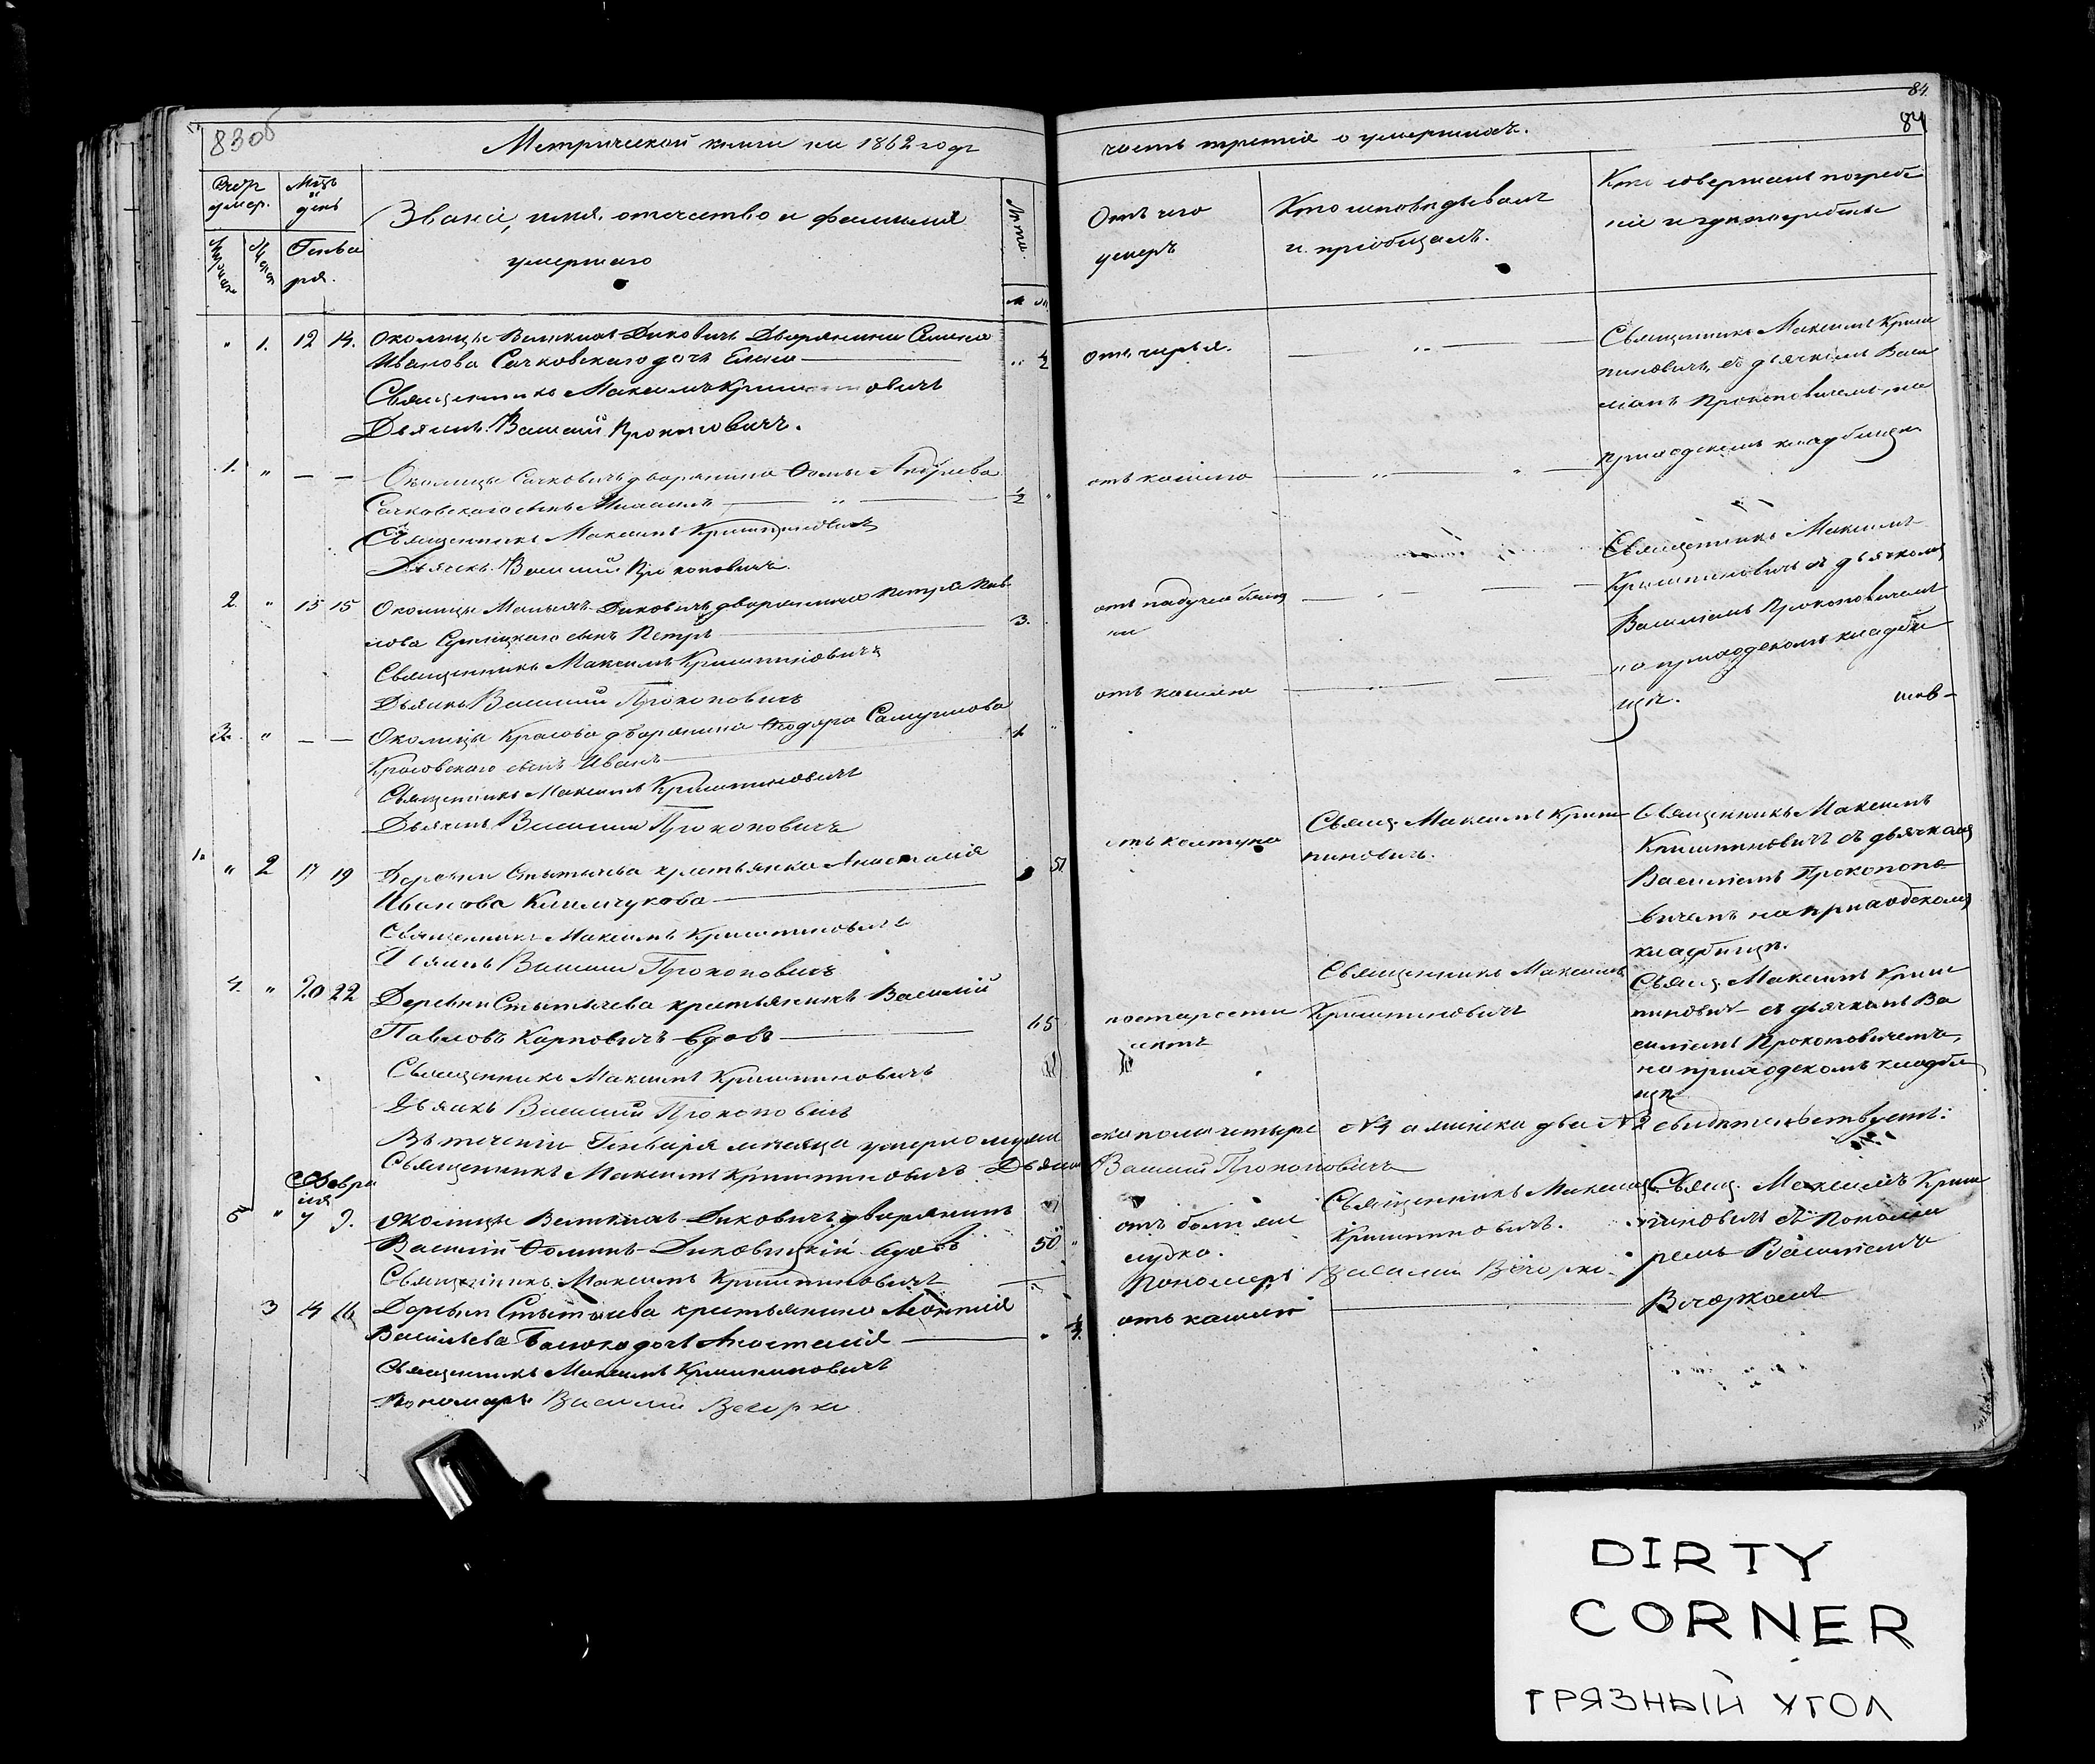 830б
84.
84
Метрической книги на 1862 годъ
часть третія о умершихъ.
Счетъ умер.
Мцъ и день
Генва
ря.
Званіе, имя, отечество и фамилія
умершаго
Лѣта.
Отъ чего
умеръ
Кто исповѣдывалъ
и пріобщалъ.
Кто совершалъ погребе
ніе и гдѣ погребены
" 1. 12 14. Околицы Великихъ Диковичъ Дворянина Семена
Иванова Сачковскаго дочь Елена
Священникъ Максимъ Криштиновичъ
Дьячекъ Василій Прокоповичъ.
" ½
отъ черья.
Священникъ Максимъ Криш
тиновичъ, съ дьячкомъ Васи
ліемъ Прокоповичемъ, на
приходскомъ кладбищѣ
1. " — — Околицы Сачковичъ дворянина Ѳомы Андреева
Сачковскаго сынъ Михаилъ
Священникъ Максимъ Криштиновичъ
Дьячекъ Василій Прокоповичъ.
½ "
отъ кашлю
2. " 13 15 Околицы Малыхъ Диковичъ дворянина Петра Пав
лова сынъ Петръ
Священникъ Максимъ Криштиновичъ
Дьячекъ Василій Прокоповичъ
3.
отъ падучей
Священникъ Максимъ
Криштиновичъ съ дьячкомъ
Василіемъ Прокоповичемъ
на приходскомъ кладби
щѣ.
3. " — — Околицы Красова дворянина Ѳеодора Самуилова
Красовскаго сынъ Иванъ
Священникъ Максимъ Криштиновичъ
Дьячекъ Василій Прокоповичъ
1. "
отъ кашлю
" 2 17 19 Деревни Стытычева крестьянка Анастасія
Иванова Климчукова
Священникъ Максимъ Криштиновичъ
Дьячекъ Василій Прокоповичъ
51.
отъ колтуна
Свящ. Максимъ Криш
тиновичъ.
Священникъ Максимъ
Криштиновичъ съ дьячкомъ
Василіемъ Прокопопо
вичемъ на приходскомъ
кладбищѣ.
4. " 20 22 Деревни Стытычева крестьянинъ Василій
Павловъ Карповичъ вдовъ
Священникъ Максимъ Криштиновичъ
Дьячекъ Василій Прокоповичъ
65
по старости
лѣтъ
Священникъ Максимъ
Криштиновичъ
Свящ. Максимъ Криш
тиновичъ съ дьячкомъ Ва
силіемъ Прокоповичемъ,
на приходскомъ кладби
щѣ
Въ теченіи Генваря мѣсяца умерло мужескаго пола четыре №4 а женска два №2 свидѣтельствуетъ:
Священникъ Максимъ Криштиновичъ Дьячекъ Василій Прокоповичъ
Февра
ля
5 " 7 9. Околицы Великихъ Диковичъ дворянинъ
Василій Ѳоминъ Диковицкій вдовъ
Священникъ Максимъ Криштиновичъ
50 "
отъ боли же
лудка.
Пономарь Василій Вечорко.
Священникъ Максимъ
Криштиновичъ.
Свящ. Максимъ Криш
тиновичъ съ Понома
ремъ Василіемъ
Вечоркомъ
3 14 16 Деревни Стытычева крестьянина Леонтія
Васильева дочь Анастасія
Священникъ Максимъ Криштиновичъ
Пономарь Василій Вечорко
отъ кашлю
DIRTY
CORNER
ГРЯЗНЫЙ УГОЛ